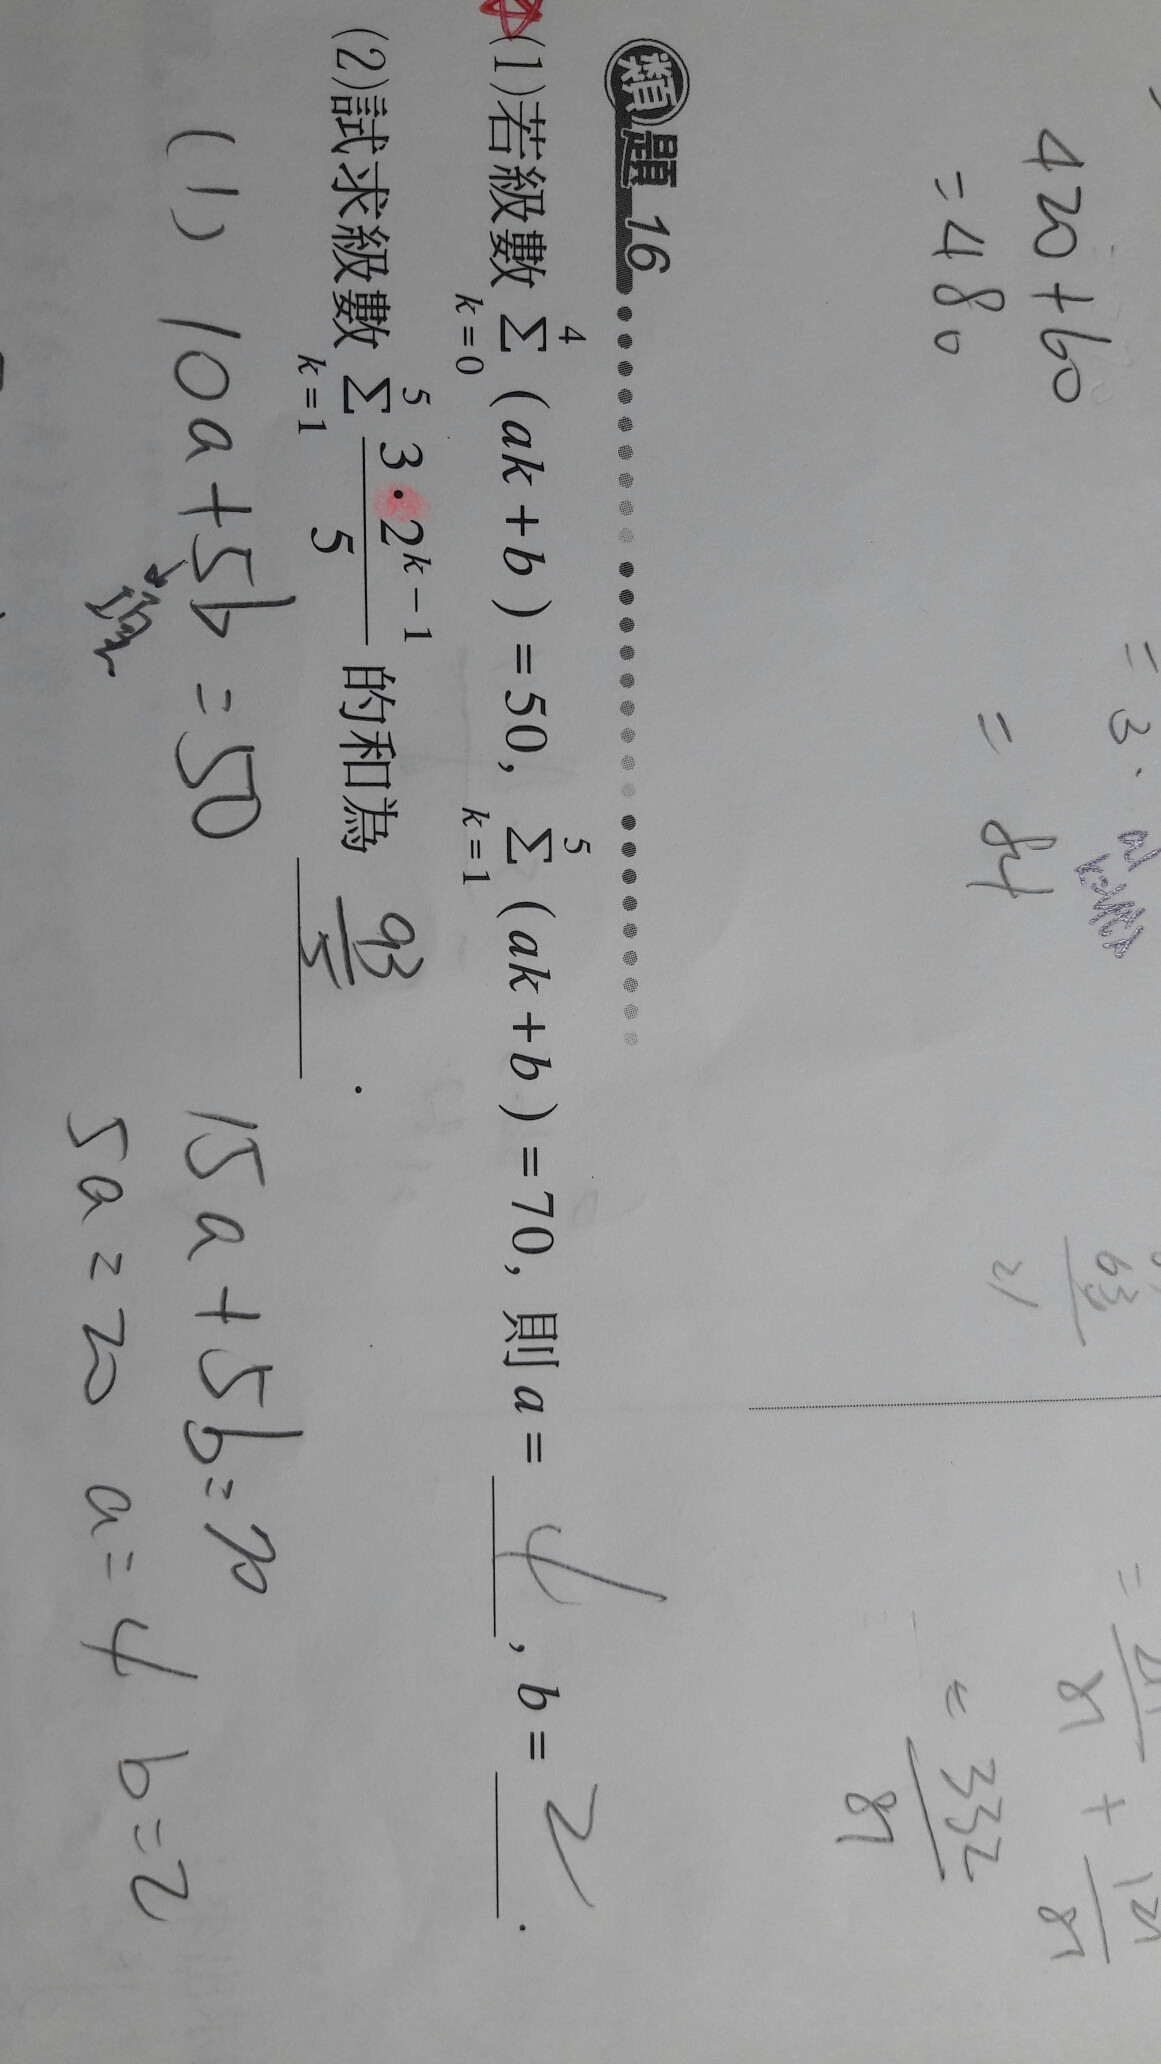 420+60
=480
=3.
= 84
63
21
=
+
= 332
81
類題 16
(1)若級數 \sum_{k=0}^{4} (ak+b)=50, \sum_{k=1}^{5} (ak+b)=70, 則 a= 4 , b= 2 .
(2)試求級數 \sum_{k=1}^{5} \frac{3 \cdot 2^{k-1}}{5} 的和為 \frac{93}{5} .
(1) 10a+5b=50 15a+5b=70
5a=20 a=4 b=2